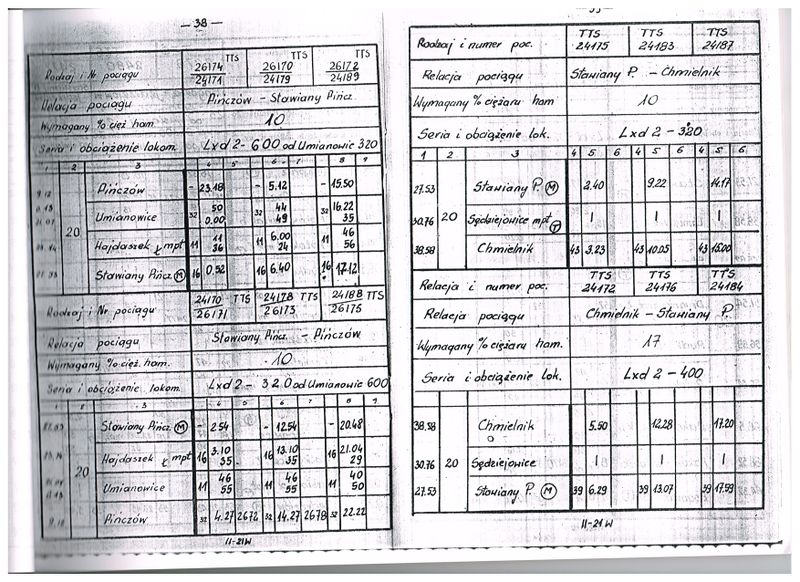 — 38 —
Rodzaj i Nr pociągu 26174 TTS 26170 TTS 26172 TTS
24171 24179 24189
Relacja pociągu Pińczów – Stawiany Pińcz.
Wymagany % cięż. ham. 10
Seria i obciążenie lokom. Lxd 2 - 600 od Umianowic 320
1 2 3 4 5 6 7 8 9
Pińczów - 23.18 - 5.12 - 15.50
Umianowice 32 50 0.00 32 44 49 32 16.22 35
20
Hajdaszek Ł mpt 11 11 36 11 6.00 24 11 46 56
Stawiany Pińcz. (M) 16 0.52 16 6.40 16 17.12
Rodzaj i Nr pociągu 24170 TTS 24178 TTS 24188 TTS
26171 26173 26175
Relacja pociągu Stawiany Pińcz. – Pińczów
Wymagany % cięż. ham. 10
Seria i obciążenie lokom. Lxd 2 - 320 od Umianowic 600
2 3 4 5 6 7 8 9
Stawiany Pińcz. (M) - 2.54 - 12.54 - 20.48
Hajdaszek Ł mpt 16 3.10 35 16 13.10 35 16 21.04 29
20
Umianowice 11 46 55 11 46 55 11 40 50
Pińczów 32 4.27 2672 32 14.27 2678 32 22.22
II-21W
Rodzaj i numer poc. TTS 24175 TTS 24183 TTS 24187
Relacja pociągu Stawiany P. – Chmielnik
Wymagany % ciężaru ham 10
Seria i obciążenie lok. Lxd 2 – 320
1 2 3 4 5 6 4 5 6 4 5 6
27.53 Stawiany P. (M) 2.40 9.22 14.17
30.76 20 Sędziejowice mpt (T) | | |
38.58 Chmielnik 43 3.23 43 10.05 43 15.00
Relacja i numer poc. TTS 24172 TTS 24176 TTS 24184
Relacja pociągu Chmielnik – Stawiany P.
Wymagany % ciężaru ham. 17
Seria i obciążenie lok. Lxd 2 – 400
38.58 Chmielnik 5.50 12.28 17.20
30.76 20 Sędziejowice | | |
27.53 Stawiany P. (M) 39 6.29 39 13.07 39 17.59
II-21W